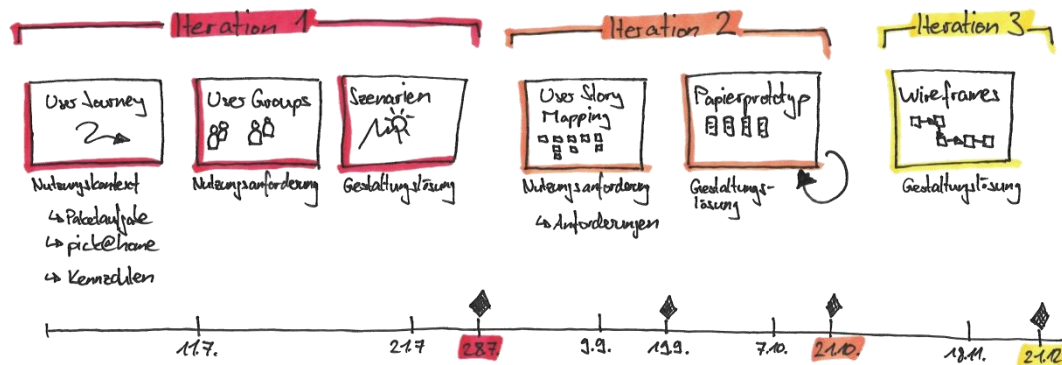 Iteration 1
Iteration 2
Iteration 3
User Journey
User Groups
Szenarien
User Story
Mapping
Papierprototyp
Wireframes
Nutzungskontext
↳ Paketaufgabe
↳ pick@home
↳ Kennzahlen
Nutzungsanforderung
Gestaltungslösung
Nutzungsanforderung
↳ Anforderungen
Gestaltungs-
lösung
Gestaltungslösung
11.7.
21.7
28.7.
9.9.
19.9.
7.10.
21.10.
18.11.
21.12